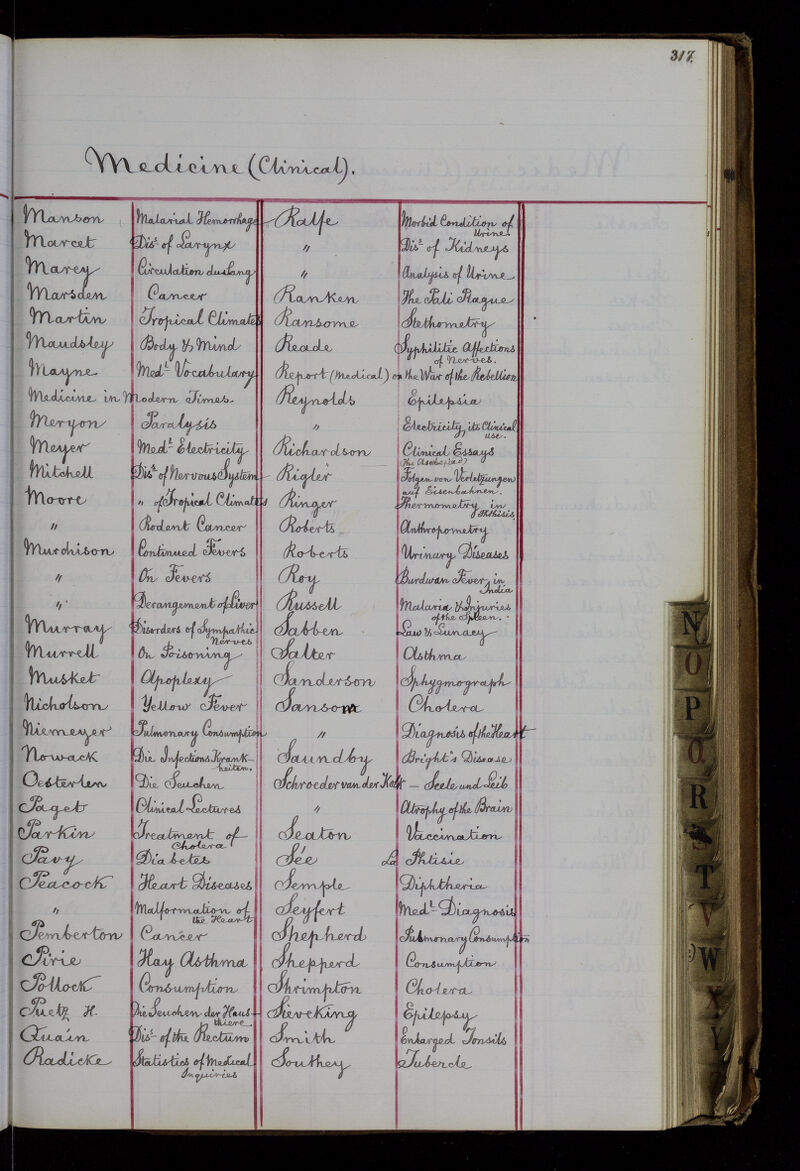 317.
Medicine (Clinical).
Manson Malarial Hemorrhage
Marcet Dis.s of Larynx
Marey Circulation du Sang
Marsden Cancer
Martin Tropical Climates
Maudsley Body & Mind
Mayne Med.l Vocabulary
Medicine in Modern Times.
Meryon Paralysis
Meyer Med.l Electricity
Mitchell Dis.s of Nervous System
Moore " of Tropical Climates
" Rodent Cancer
Murchison Continued Fevers
" On Fevers
" Derangement of Liver
Murray Disorders of Sympathic
Nerves
Murrell On Poisoning
Musket Apoplexy
Nicholson Yellow Fever
Niemeyer Pulmonary Consumption
Nowack Die Infections Krank-
heiten.
Oesterlen Die Seuchen
Paget Clinical Lectures
Parkin Treatment of
Cholera
Pavy Diabetes
Peacock Heart Diseases
" Malformation of
the Heart
Pemberton Cancer
Pirie Hay Asthma
Pollock Consumption
Puetz H. Die Seuchen der Haus-
thiere
Quain Dis.s of the Rectum
Radicke Statistics of Medical
Inquiries
Ralfe Morbid Condition of
Urine
" Dis.s of Kidneys
" Analysis of Urine
Ranken The Pali Plague
Ransome Stethometry
Reade Syphilitic Affections
of Nerves.
Report (Medical) on the War of the Rebellion
Reynolds Epilepsia
" Electricity, its Clinical
use.
Richardson Clinical Essays
(The Asclepiad)
Rigler Folgen von Verletzungen
auf Eisenbahnen.
Ringer Thermometry in
Phthisis.
Roberts Anthropometry
Roberts Urinary Diseases
Roy Burdwan Fever, in
India
Russell Malaria & Injuries
of the Spleen.
Sabben Law & Lunacy
Salter Asthma
Sanderson Sphygmograph
Sansom Cholera
" Diagnosis of the Heart
Saundby Bright's Disease
Schroeder van der Kolk — Seele und Leib
" Atrophy of the Brain
Seaton Vaccination
Sée La Phtisie
Semple Diphtheria
Seyfert Med.l Diagnosis
Shepherd Pulmonary Consumption
Shepherd Consumption
Shrimpton Cholera
Sieveking Epilepsy
Smith Enlarged Tonsils
Southey Tubercle
N
O
P
Q
R
T
V
W
X
Y